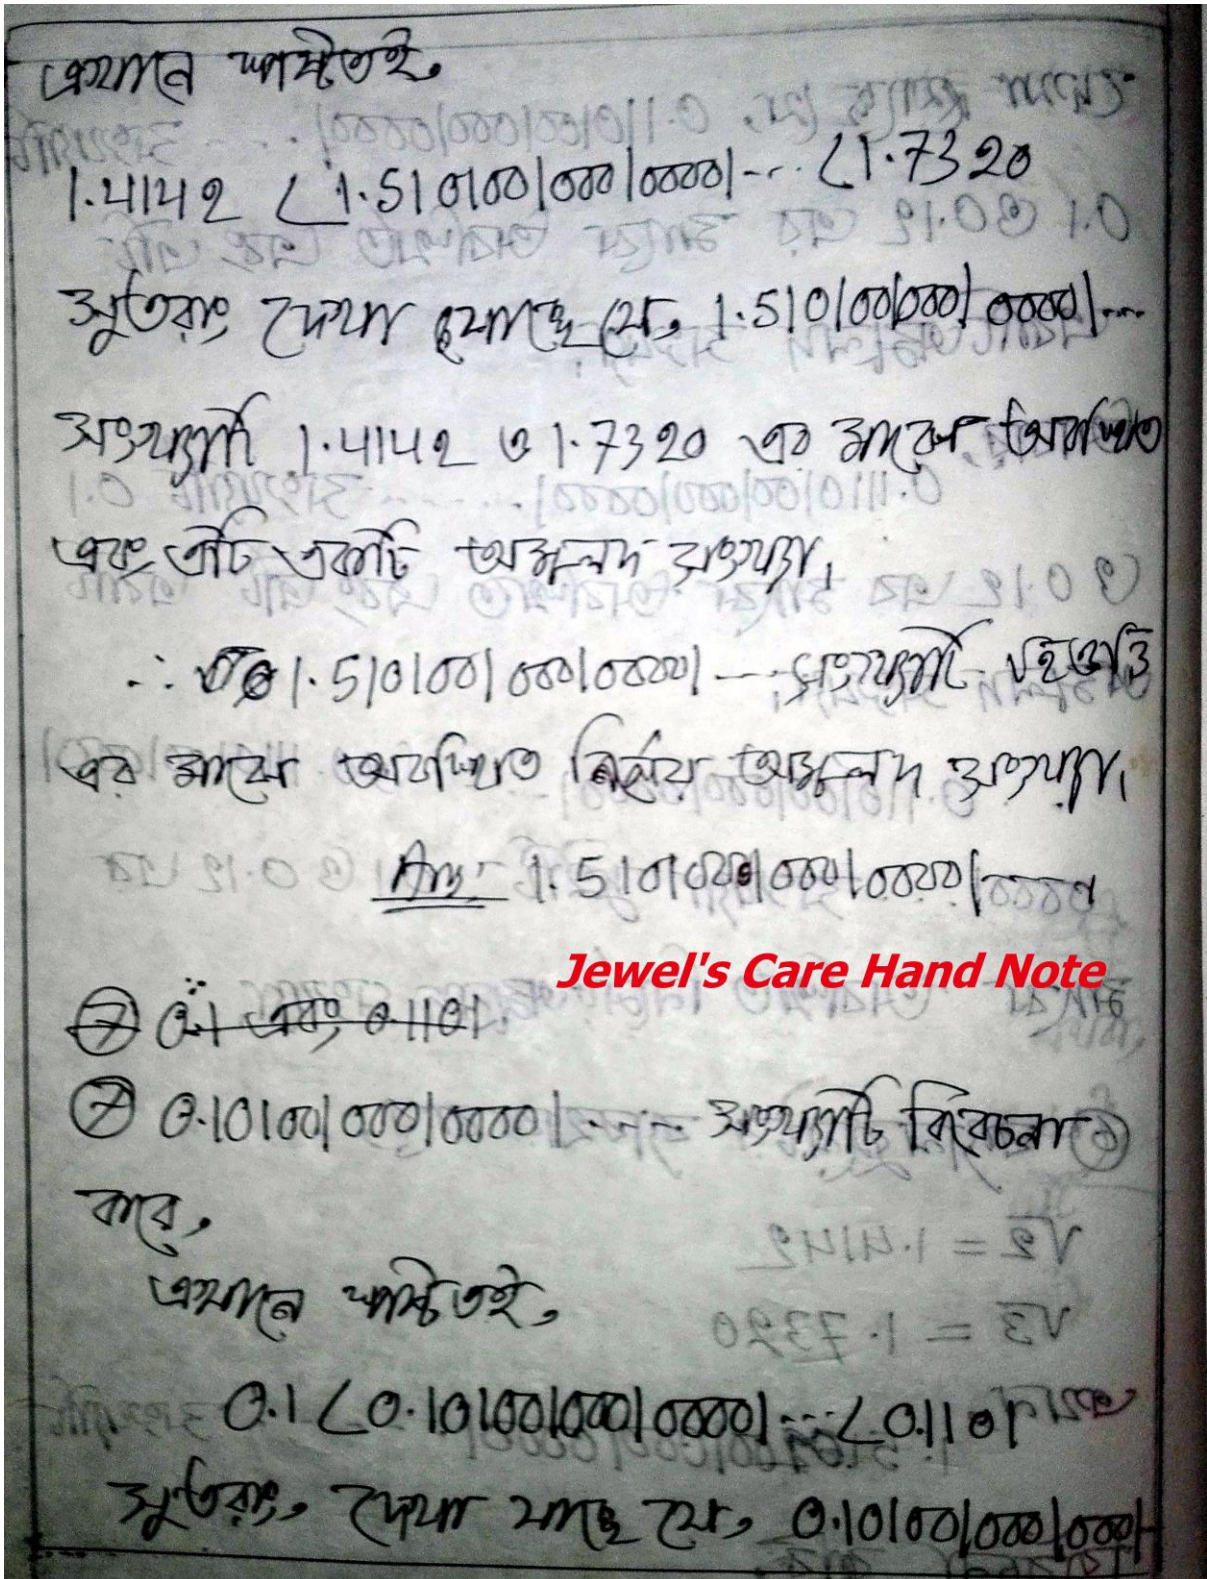 এখানে স্পষ্টতই,
1.4142 < 1.5101001000100001... < 1.7320
সুতরাং দেখা যাচ্ছে যে, 1.5101001000100001....
সংখ্যাটি 1.4142 ও 1.7320 এর মাঝে অবস্থিত
এবং এটি একটি অমূলদ সংখ্যা।
∴ 1.5101001000100001 ---- সংখ্যাটি
এর মাঝে অবস্থিত নির্ণেয় অমূলদ সংখ্যা।
Ans: 1.5101001000100001----
Jewel's Care Hand Note
⑦ 0.1 এবং 0.1101
⑦ 0.101001000100001---- সংখ্যাটি বিবেচনা
করে,
এখানে স্পষ্টতই,
0.1 < 0.101001000100001... < 0.1101
সুতরাং, দেখা যাচ্ছে যে, 0.10100100010001